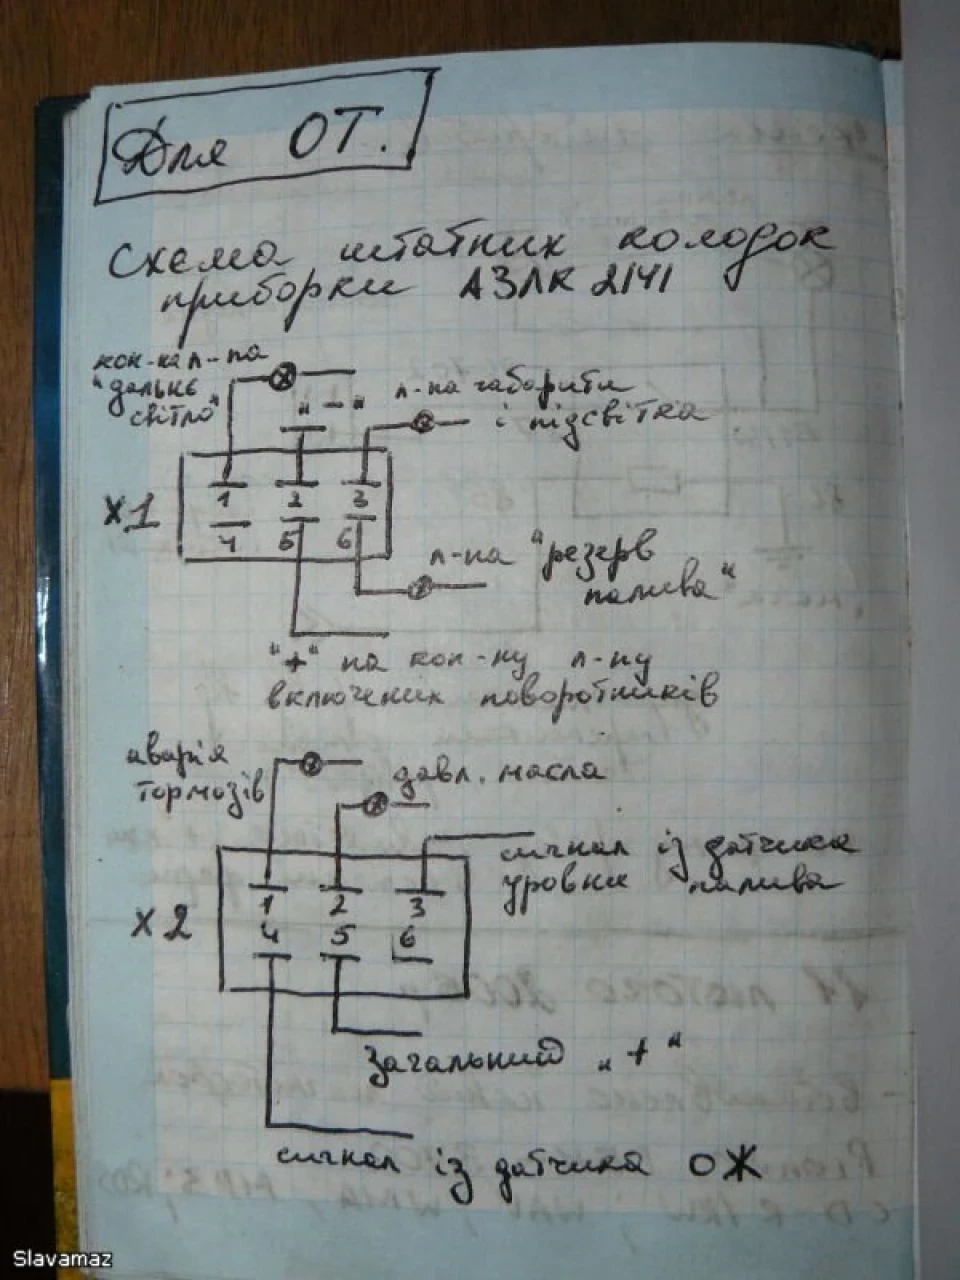 Для ОТ.
Схема штатних колодок
приборки АЗЛК 2141
кон-на л-па
"дальнє
світло"
"-"
л-па габарити
і підсвітка
X1
1 2 3
4 5 6
л-па "резерв
палива"
"+" на кон-ну л-пу
включених поворотників
аварія
тормозів
давл. масла
сигнал із датчика
уровня палива
X2
1 2 3
4 5 6
Загальний "+"
сигнал із датчика ОЖ
Slavamaz